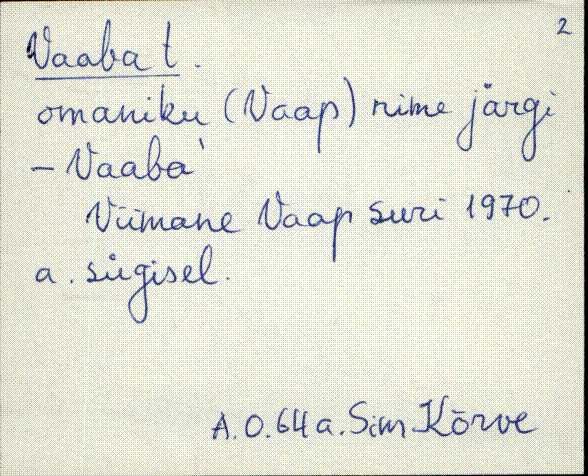 2
Vaaba t.
omaniku (Vaap) nime järgi
- Vaaba`
Viimane Vaap suri 1970.
a. sügisel.
A.O. 64 a. Sim Kõrve